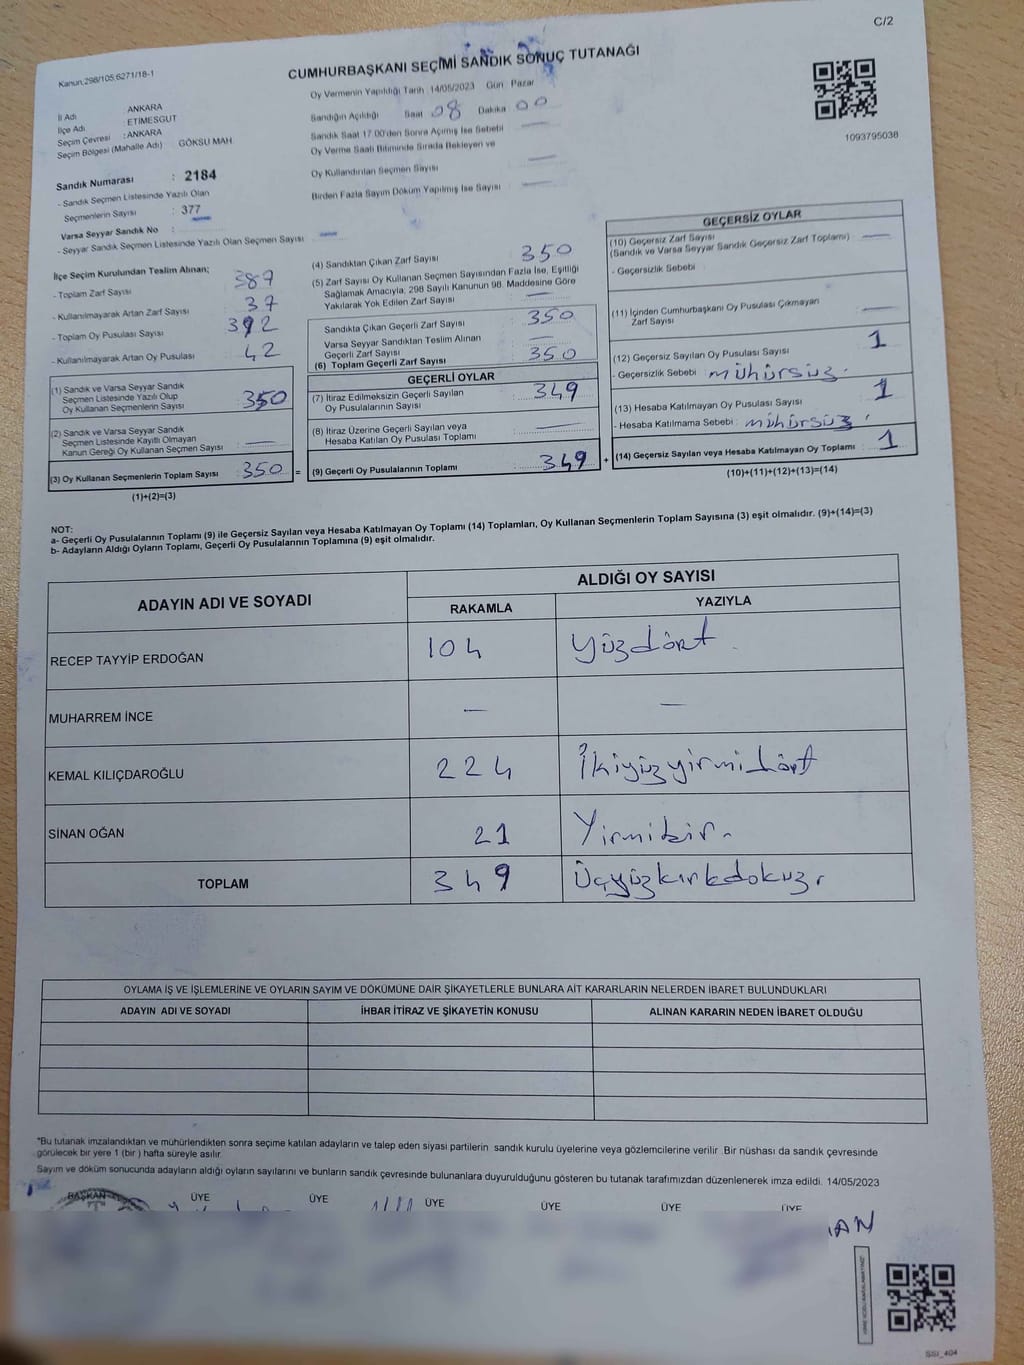 C/2
Kanun:298/105,6271/18-1
CUMHURBAŞKANI SEÇİMİ SANDIK SONUÇ TUTANAĞI
1093795038
İl Adı ANKARA
İlçe Adı ETİMESGUT
Seçim Çevresi : ANKARA
Seçim Bölgesi (Mahalle Adı) GÖKSU MAH
Sandık Numarası : 2184
- Sandık Seçmen Listesinde Yazılı Olan
Seçmenlerin Sayısı : 377
Varsa Seyyar Sandık No :
- Seyyar Sandık Seçmen Listesinde Yazılı Olan Seçmen Sayısı —
Oy Vermenin Yapıldığı Tarih 14/05/2023 Gün Pazar
Sandığın Açıldığı Saat 08 Dakika 00
Sandık Saat 17.00'den Sonra Açılmış İse Sebebi —
Oy Verme Saati Bitiminde Sırada Bekleyen ve
Oy Kullandırılan Seçmen Sayısı —
Birden Fazla Sayım Döküm Yapılmış İse Sayısı —
İlçe Seçim Kurulundan Teslim Alınan;
- Toplam Zarf Sayısı 387
- Kullanılmayarak Artan Zarf Sayısı 37
- Toplam Oy Pusulası Sayısı 392
- Kullanılmayarak Artan Oy Pusulası 42
(1) Sandık ve Varsa Seyyar Sandık
Seçmen Listesinde Yazılı Olup
Oy Kullanan Seçmenlerin Sayısı 350
(2) Sandık ve Varsa Seyyar Sandık
Seçmen Listesinde Kayıtlı Olmayan
Kanun Gereği Oy Kullanan Seçmen Sayısı —
(3) Oy Kullanan Seçmenlerin Toplam Sayısı 350 =
(1)+(2)=(3)
(4) Sandıktan Çıkan Zarf Sayısı 350
(5) Zarf Sayısı Oy Kullanan Seçmen Sayısından Fazla İse, Eşitliği
Sağlamak Amacıyla, 298 Sayılı Kanunun 98. Maddesine Göre
Yakılarak Yok Edilen Zarf Sayısı —
Sandıkta Çıkan Geçerli Zarf Sayısı 350
Varsa Seyyar Sandıktan Teslim Alınan
Geçerli Zarf Sayısı —
(6) Toplam Geçerli Zarf Sayısı 350
GEÇERLİ OYLAR
(7) İtiraz Edilmeksizin Geçerli Sayılan
Oy Pusulalarının Sayısı 349
(8) İtiraz Üzerine Geçerli Sayılan veya
Hesaba Katılan Oy Pusulası Toplamı —
(9) Geçerli Oy Pusulalarının Toplamı : 349 +
GEÇERSİZ OYLAR
(10) Geçersiz Zarf Sayısı
(Sandık ve Varsa Seyyar Sandık Geçersiz Zarf Toplamı) —
- Geçersizlik Sebebi
(11) İçinden Cumhurbaşkanı Oy Pusulası Çıkmayan
Zarf Sayısı —
(12) Geçersiz Sayılan Oy Pusulası Sayısı 1
- Geçersizlik Sebebi mühürsüz.
(13) Hesaba Katılmayan Oy Pusulası Sayısı 1
- Hesaba Katılmama Sebebi : mühürsüz.
(14) Geçersiz Sayılan veya Hesaba Katılmayan Oy Toplamı : 1
(10)+(11)+(12)+(13)=(14)
NOT:
a- Geçerli Oy Pusulalarının Toplamı (9) ile Geçersiz Sayılan veya Hesaba Katılmayan Oy Toplamı (14) Toplamları, Oy Kullanan Seçmenlerin Toplam Sayısına (3) eşit olmalıdır. (9)+(14)=(3)
b- Adayların Aldığı Oyların Toplamı, Geçerli Oy Pusulalarının Toplamına (9) eşit olmalıdır.
ADAYIN ADI VE SOYADI
ALDIĞI OY SAYISI
RAKAMLA YAZIYLA
RECEP TAYYİP ERDOĞAN 104 Yüzdört.
MUHARREM İNCE — —
KEMAL KILIÇDAROĞLU 224 İkiyüzyirmidört
SİNAN OĞAN 21 Yirmibir.
TOPLAM 349 Üçyüzkırkdokuz.
OYLAMA İŞ VE İŞLEMLERİNE VE OYLARIN SAYIM VE DÖKÜMÜNE DAİR ŞİKAYETLERLE BUNLARA AİT KARARLARIN NELERDEN İBARET BULUNDUKLARI
ADAYIN ADI VE SOYADI İHBAR İTİRAZ VE ŞİKAYETİN KONUSU ALINAN KARARIN NEDEN İBARET OLDUĞU
*Bu tutanak imzalandıktan ve mühürlendikten sonra seçime katılan adayların ve talep eden siyasi partilerin sandık kurulu üyelerine veya gözlemcilerine verilir .Bir nüshası da sandık çevresinde
görülecek bir yere 1 (bir ) hafta süreyle asılır.
Sayım ve döküm sonucunda adayların aldığı oyların sayılarını ve bunların sandık çevresinde bulunanlara duyurulduğunu gösteren bu tutanak tarafımızdan düzenlenerek imza edildi. 14/05/2023
BAŞKAN ÜYE ÜYE ÜYE ÜYE ÜYE ÜYE
SSI_404